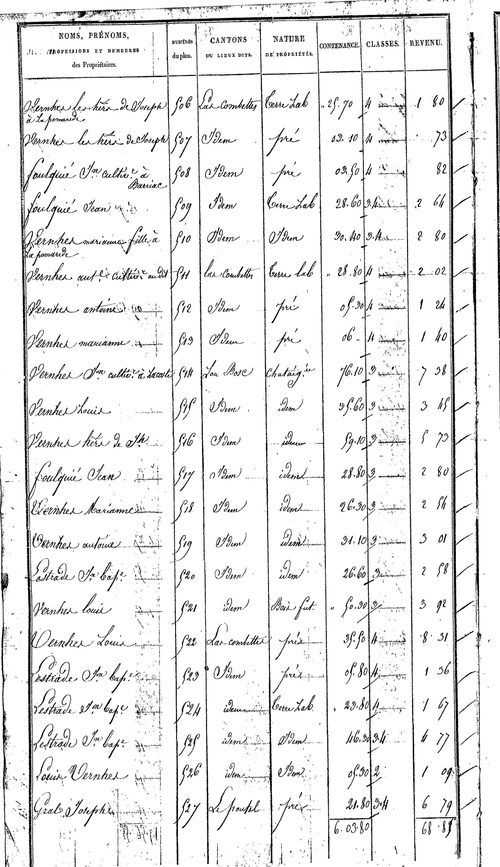 NOMS, PRÉNOMS, PROFESSIONS ET DEMEURES des Propriétaires. NUMÉROS du plan. CANTONS OU LIEUX DITS. NATURE DE PROPRIÉTÉS. CONTENANCE. CLASSES. REVENU.
Vernhes les hérs de Joseph à La pomarede 506 Las combettes Terre Lab " 25.70 4 1 80
Vernhes les hérs de Joseph 507 Idem pré 03.10 4 73
foulquié Jn cultivr à Barriac 508 Idem pré 03.50 4 82
foulquié Jean 509 Idem Terre Lab 28.60 3.4 2 64
Vernhes marianne fille à La pomarede 510 Idem Idem 30.40 3.4 2 80
Vernhes ant. cultivr au dit 511 las combettes Terre lab " 28.80 4 2 02
Vernhes antoine 512 Idem pré 05.30 4 1 24
Vernhes marianne 513 Idem pré 06 " 4 1 40
Vernhes Jn cultivr à Lacoste 514 Lou Bosc Chataigre 76.10 3 7 38
Vernhes Louis 515 Idem idem 35.60 3 3 45
Vernhes hérs de Jh 516 Idem idem 59.10 3 5 73
foulquié Jean 517 Idem idem 28.80 3 2 80
Vernhes Marianne 518 Idem idem 26.30 3 2 54
Vernhes antoine 519 Idem idem 31.10 3 3 01
Lestrade Jn Bapt 520 Idem idem 26.60 3 2 58
Vernhes louis 521 idem Bois fut. " 50.30 3 3 92
Vernhes Louis 522 Las combettes pré 35.50 4 8 31
Lestrade Jn Bapt 523 Idem pré 05.80 4 1 36
Lestrade Jn Bapt 524 idem Terre Lab " 23.80 4 1 67
Lestrade Jn Bapt 525 idem Idem 46.30 3.4 4 77
Louis Vernhes 526 idem Idem 05.30 2 1 09
Gral Joseph 527 Le poujol pré 21.80 3.4 6 79
6.03.80 68.89